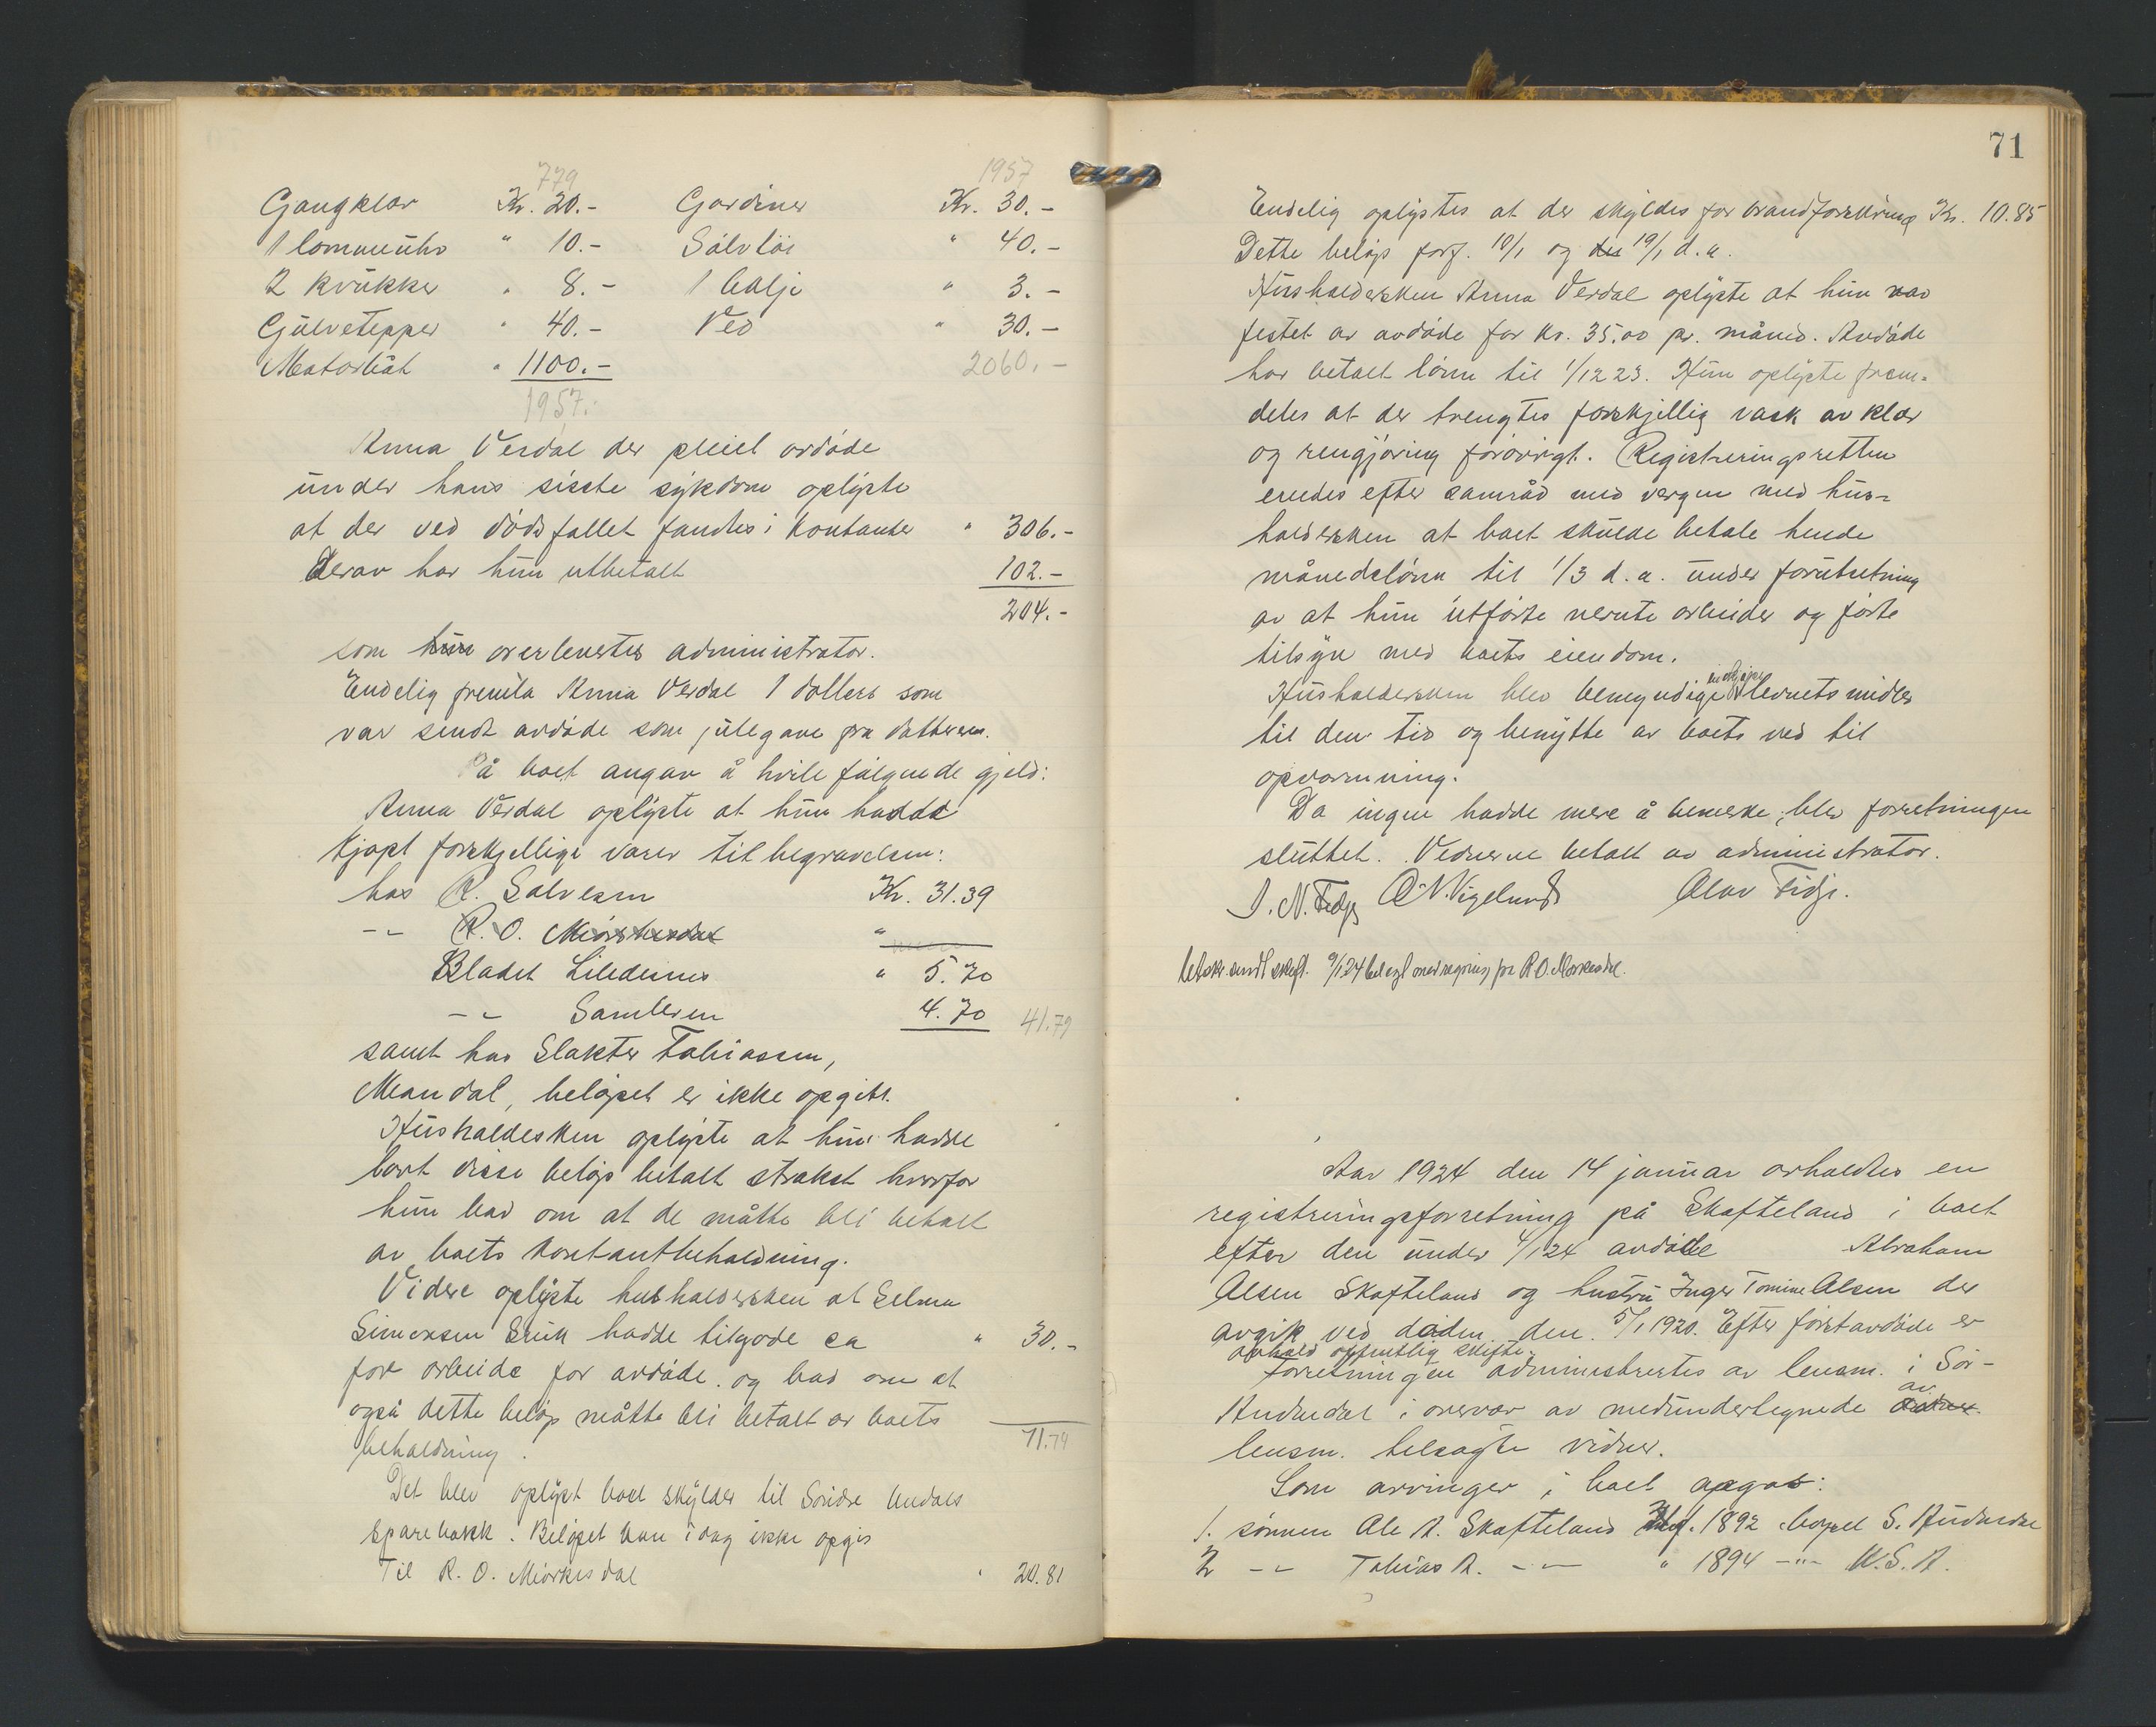 779 1957
Gangklær Kr. 20.- Gardiner Kr. 30.-
1 lommeuhr " 10.- Sølvtøi " 40.-
2 krukker " 8.- 1 balje " 3.-
Gulvetepper " 40.- Ved " 30.-
Motorbåt " 1100.- 2060.-
1957.-
Anna Verdal der pleiet avdøde
under hans siste sykdom oplyste
at der ved dødsfallet fandtes i kontanter " 306.-
Derav har hun utbetalt 102.-
204.-
som hun overlevertes administrator.
Endelig fremla Anna Verdal 1 dollers som
var sendt avdøde som julegave fra datteren.
På boet angav å hvile følgende gjeld:
Anna Verdal oplyste at hun hadde
kjøpt forskjellige varer til begravelsen:
hos R. Salvesen Kr. 31.39
-"- R. O. Mørkesdal "
Bladet Lindesnes " 5.70
-"- Samleren 4.70 41.79
samt hos Slakter Tobiassen,
Mandal, beløpet er ikke opgitt.
Husholdesken oplyste at hun hadde
lovt disse beløp betalt strakst hvorfor
hun bad om at de måtte bli betalt
av boets kontantbeholdning.
Videre oplyste husholdersken at Selma
Simonsen hadde tilgode ca " 30.-
for arbeide for avdøde. og bad om at
også dette beløp måtte bli betalt av boets
beholdning. 71.79
Det blev oplyst boet skylder til Søndre Undals
Sparebank. Beløpet kan i dag ikke opgis
Til R. O. Mørkesdal " 20.81
71
Endelig oplystes at der skyldes for brandforsikring Kr. 10.85
Dette beløp forf. 10/1 og 19/1 d.a.
Husholdersken Anna Verdal oplyste at hun var
festet av avdøde for kr. 35.00 pr. måned. Avdøde
har betalt lønn til 1/12 23. Hun oplyste frem-
deles at der trengtes forskjellig vask av klær
og rengjøring forøvrigt. Registreringsretten
enedes efter samråd med vergen med hus-
holdersken at boet skulde betale hende
månedslønn til 1/3 d.a. under forutsetning
av at hun utførte nevnte arbeider og førte
tilsyn med boets eiendom.
Husholdersken blev bemyndiget indkjøpe levnetsmidler
til den tid og benytte av boets ved til
opvarmning.
Da ingen hadde mere å bemerke, blev forretningen
sluttet. Vidnerne betalt av administrator.
O. N. Vigeland Olav Fidje.
R. O. Mørkesdal.
Aar 1924 den 14 januar avholdtes en
registreringsforretning på Skofteland i boet
efter den under 4/1 24 avdøde Abraham
Olsen Skofteland og hustru Inger Tomine Olsen der
avgik ved døden den 5/1 1920. Efter førstavdøde er
avhold offentlig skifte.
Forretningen administrertes av lensm. i Sør-
Audnedal i overvær av medundertegnede av
lensm. tilsagte vidner.
Som arvinger i boet opgas:
1. sønnen Ole A. Skofteland f. 1892 bopæl S. Audnedal
2 -"- Tobias A. -"- " 1894 -"- U.S.A.